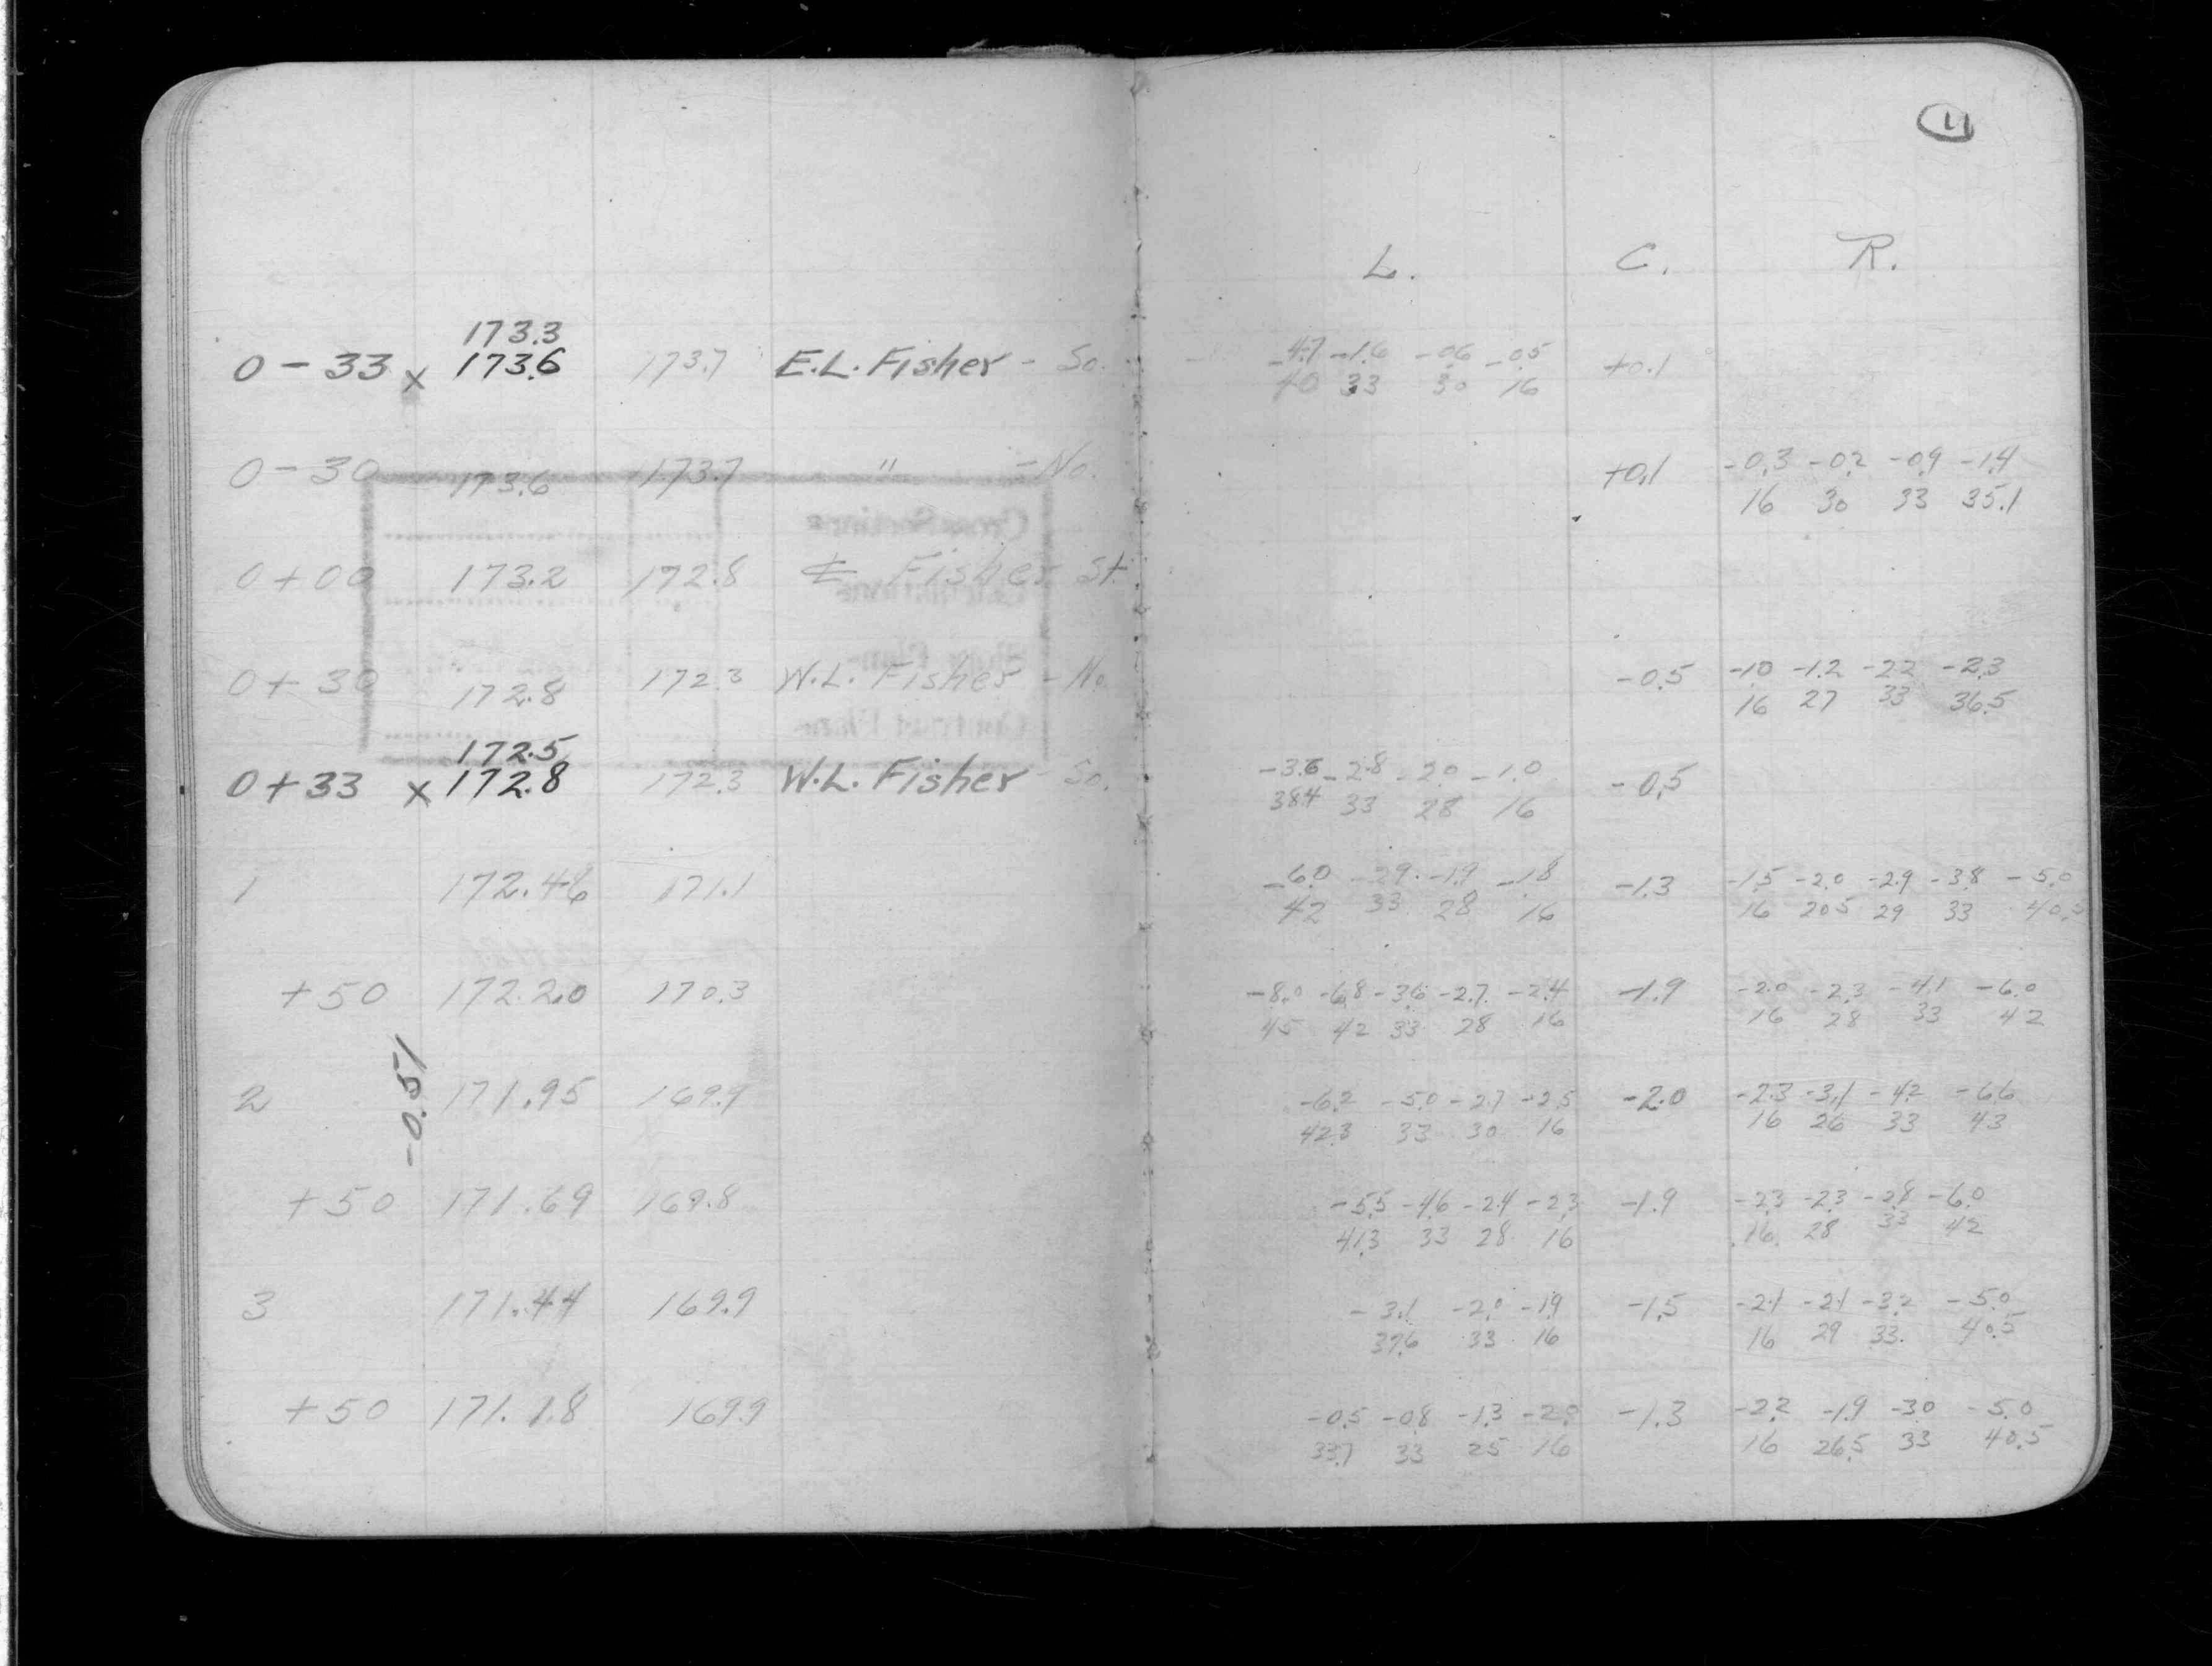 11
L. C. R.
173.3
0-33 x 173.6 173.7 E.L. Fisher - So. -4.7 -1.6 -0.6 -0.5 +0.1
40 33 30 16
0-30 173.6 173.7 " - No. +0.1 -0.3 -0.2 -0.9 -1.4
16 30 33 35.1
0+00 173.2 172.8 ℄ Fisher St.
0+30 172.8 172.3 W.L. Fisher - No. -0.5 -1.0 -1.2 -2.2 -2.3
16 27 33 36.5
172.5
0+33 x 172.8 172.3 W.L. Fisher - So. -3.6 -2.8 -2.0 -1.0 -0.5
38.4 33 28 16
1 172.46 171.1 -6.0 -2.9 -1.9 -1.8 -1.3 -1.5 -2.0 -2.9 -3.8 -5.0
42 33 28 16 16 20.5 29 33 40.5
+50 172.20 170.3 -8.0 -6.8 -3.6 -2.7 -2.4 -1.9 -2.0 -2.3 -4.1 -6.0
45 42 33 28 16 16 28 33 42
-0.51
2 171.95 169.9 -6.2 -5.0 -2.7 -2.5 -2.0 -2.3 -3.1 -4.2 -6.6
42.3 33 30 16 16 26 33 43
+50 171.69 169.8 -5.5 -4.6 -2.4 -2.3 -1.9 -2.3 -2.3 -2.8 -6.0
41.3 33 28 16 16 28 33 42
3 171.44 169.9 -3.1 -2.0 -1.9 -1.5 -2.1 -2.1 -3.2 -5.0
37.6 33 16 16 29 33 40.5
+50 171.18 169.9 -0.5 -0.8 -1.3 -2.0 -1.3 -2.2 -1.9 -3.0 -5.0
33.7 33 25 16 16 26.5 33 40.5